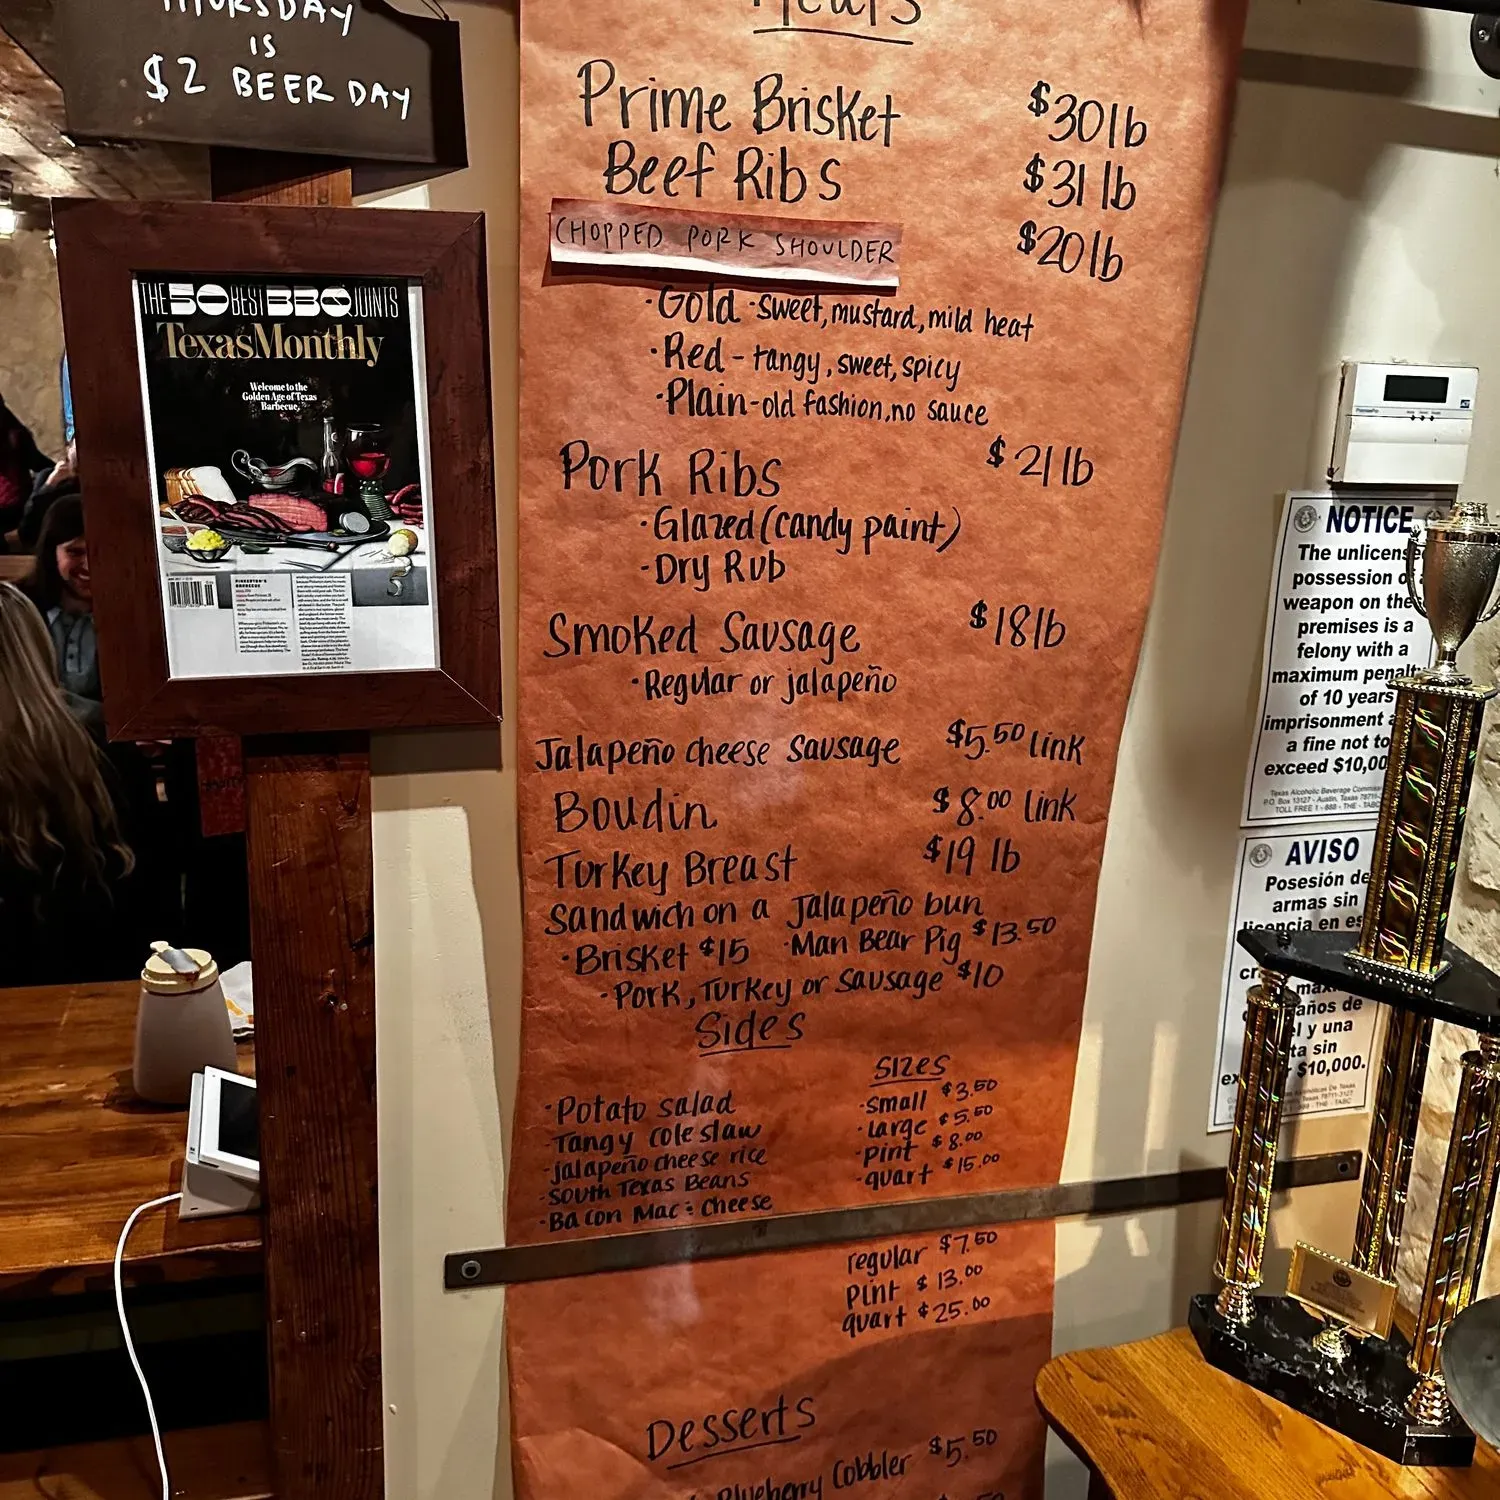 THURSDAY
IS
$2 BEER DAY
THE 50 BEST BBQ JOINTS
TexasMonthly
Welcome to the
Golden Age of Texas
Barbecue.
PINKERTON'S
BARBECUE
Meats
Prime Brisket $30 lb
Beef Ribs $31 lb
CHOPPED PORK SHOULDER $20 lb
·Gold - sweet, mustard, mild heat
·Red - tangy, sweet, spicy
·Plain - old fashion, no sauce
Pork Ribs $21 lb
·Glazed (candy paint)
·Dry Rub
Smoked Sausage $18 lb
·Regular or jalapeño
Jalapeño cheese Sausage $5.50 link
Boudin $8.00 link
Turkey Breast $19 lb
Sandwich on a Jalapeño bun
·Brisket $15 ·Man Bear Pig $13.50
·Pork, Turkey or Sausage $10
Sides
·Potato salad
·Tangy coleslaw
·jalapeño cheese rice
·South Texas Beans
·Bacon Mac & Cheese
Sizes
·small $3.50
·large $5.50
·pint $8.00
·quart $15.00
regular $7.50
pint $13.00
quart $25.00
Desserts
Blueberry Cobbler $5.50
NOTICE
The unlicensed
possession of a
weapon on these
premises is a
felony with a
maximum penalty
of 10 years
imprisonment
a fine not to
exceed $10,00
Texas Alcoholic Beverage Commiss
P.O. Box 13127 - Austin, Texas 78711-
TOLL FREE 1 - 888 - THE - TABC
AVISO
Posesión de
armas sin
licencia en es
años de
y una
sin
$10,000.